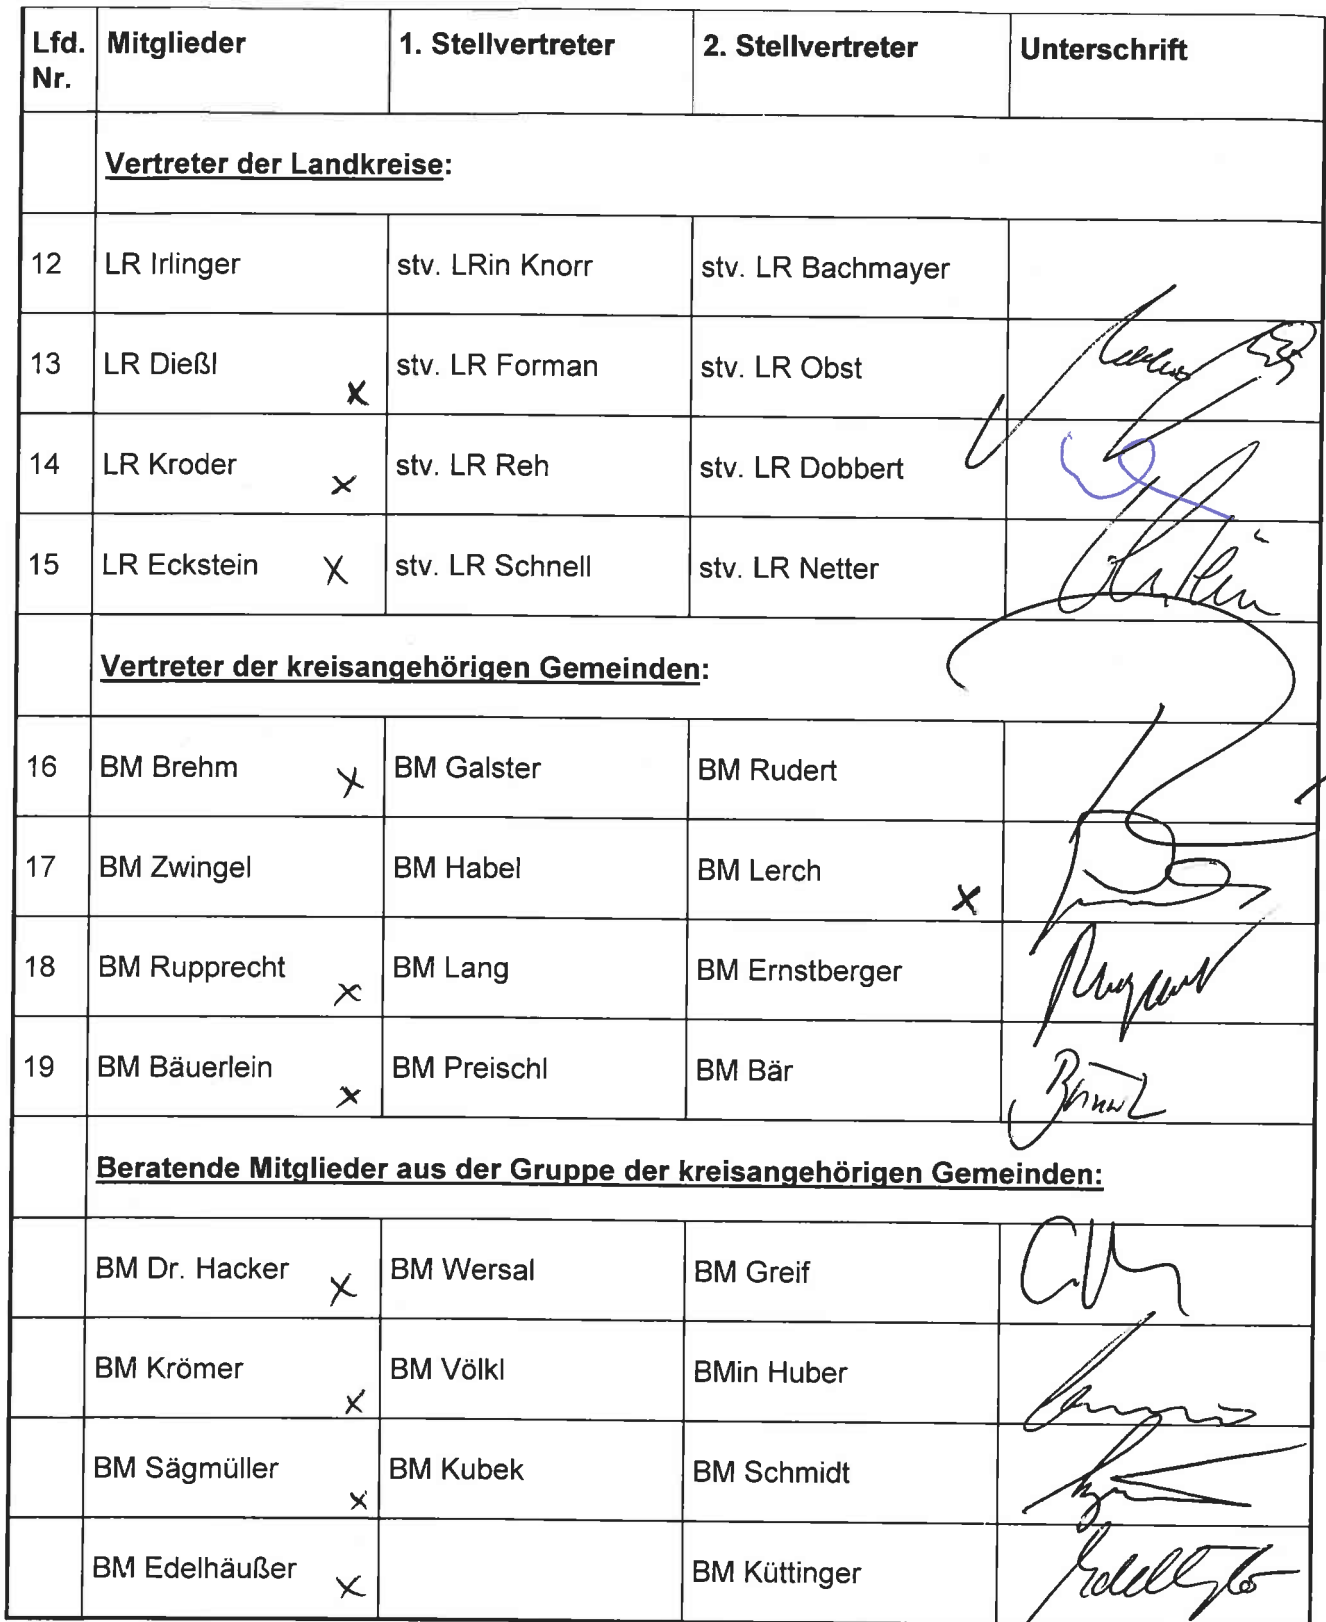 Lfd. Nr. Mitglieder 1. Stellvertreter 2. Stellvertreter Unterschrift
Vertreter der Landkreise:
12 LR Irlinger stv. LRin Knorr stv. LR Bachmayer
13 LR Dießl x stv. LR Forman stv. LR Obst
14 LR Kroder x stv. LR Reh stv. LR Dobbert
15 LR Eckstein x stv. LR Schnell stv. LR Netter
Vertreter der kreisangehörigen Gemeinden:
16 BM Brehm x BM Galster BM Rudert
17 BM Zwingel BM Habel BM Lerch x
18 BM Rupprecht x BM Lang BM Ernstberger
19 BM Bäuerlein x BM Preischl BM Bär
Beratende Mitglieder aus der Gruppe der kreisangehörigen Gemeinden:
BM Dr. Hacker x BM Wersal BM Greif
BM Krömer x BM Völkl BMin Huber
BM Sägmüller x BM Kubek BM Schmidt
BM Edelhäußer x BM Küttinger